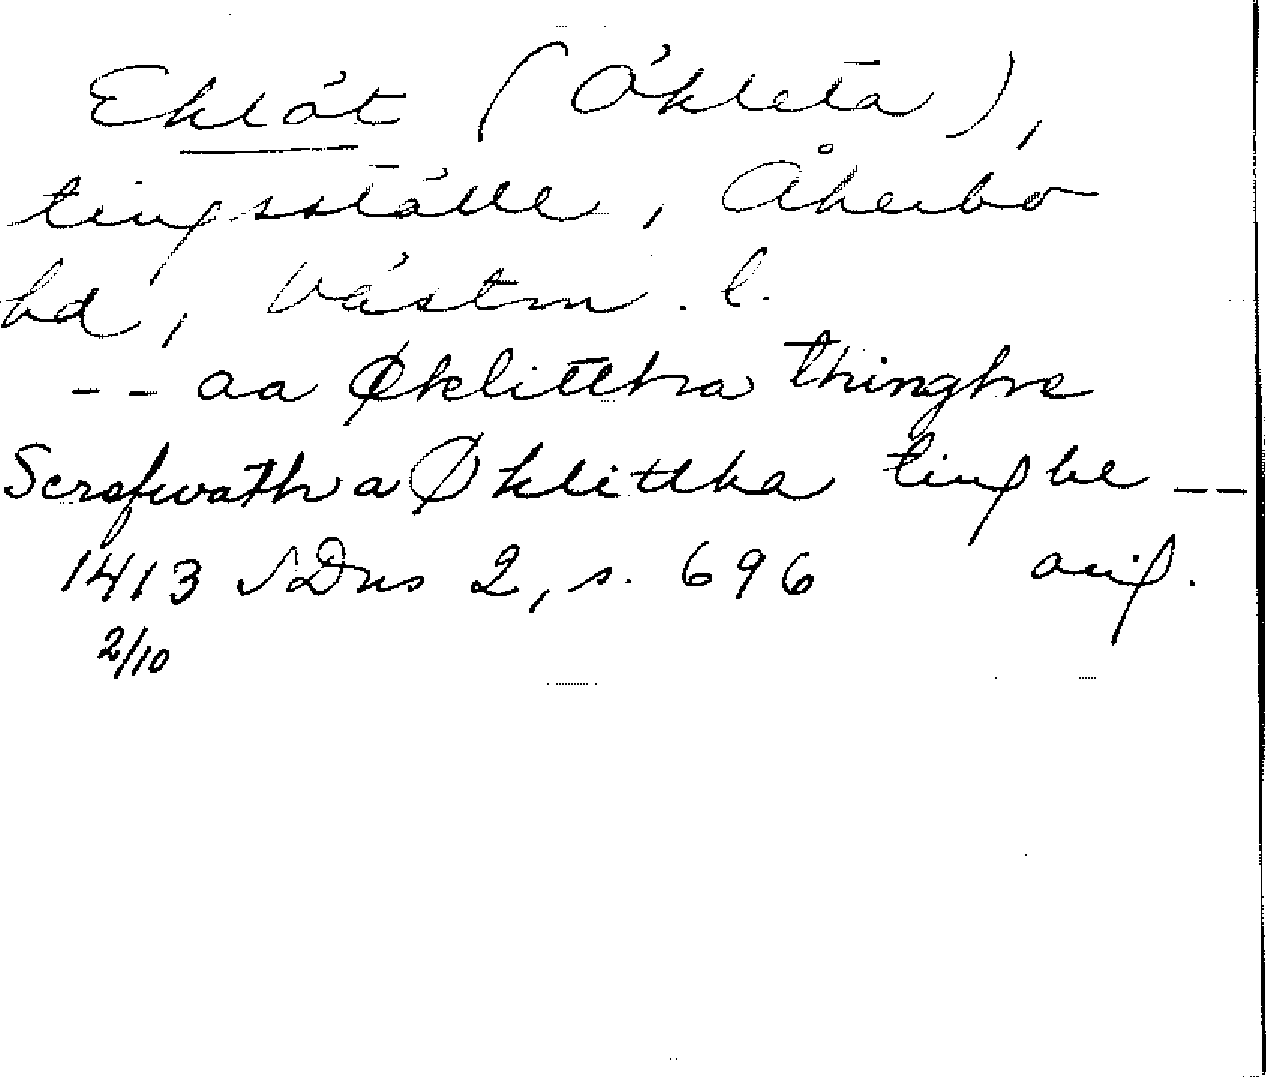 Eklöt (Ökleta),
tingsställe, Åkerbo
hd, Västm. l.
-- aa Øklittha thinghe
Screfwath a Øklittha tinghe --
1413 SDns 2, s. 696 avig.
2/10